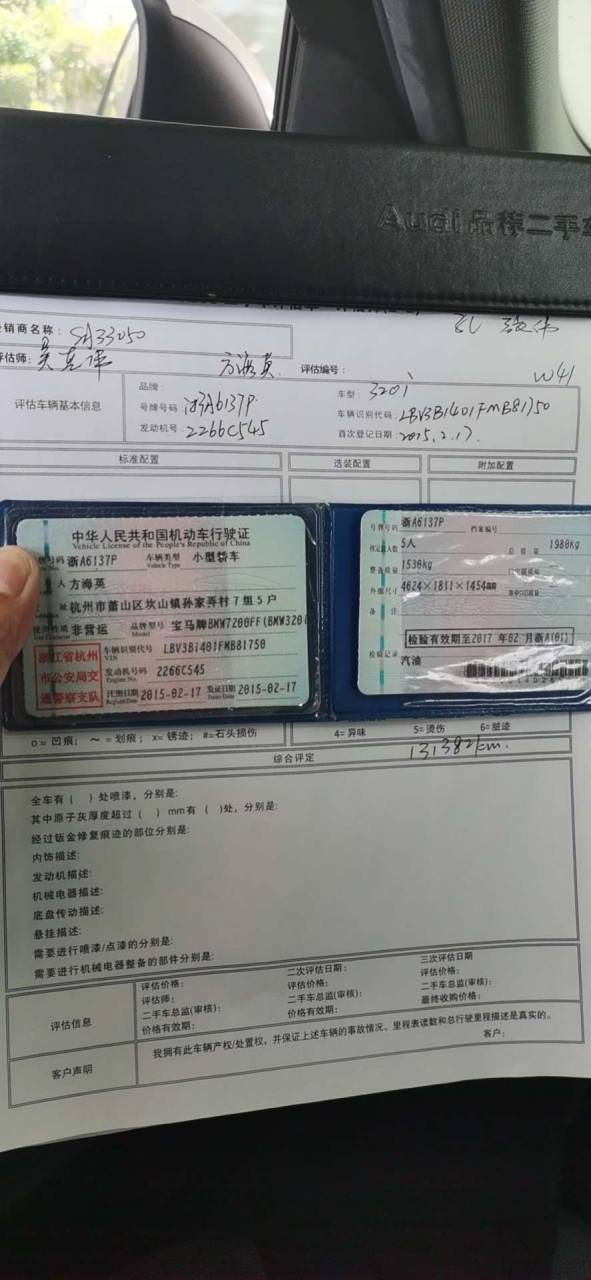 Audi 品荐二手车
经销商名称: SA33050
评估师: 方海英 评估编号: W41
评估车辆基本信息
品牌: 车型: 320i
号牌号码: 浙A6137P 车辆识别代码: LBV3B1401FMB81750
发动机号: 2266C545 首次登记日期: 2015.2.17.
标准配置 选装配置 附加配置
中华人民共和国机动车行驶证
Vehicle License of the People's Republic of China
号牌号码 浙A6137P 车辆类型 Vehicle Type 小型轿车
人 方海英
址 杭州市萧山区坎山镇孙家弄村7组5户
使用性质 Use Character 非营运 品牌型号 Model 宝马牌BMW7200FF(BMW320
浙江省杭州市公安局交通警察支队
车辆识别代号 VIN LBV3B1401FMB81750
发动机号码 Engine No. 2266C545
注册日期 Register Date 2015-02-17 发证日期 Issue Date 2015-02-17
号牌号码 浙A6137P 档案编号
核定载人数 5人 总质量 1980kg
整备质量 1530kg
外廓尺寸 4624×1811×1454
备注
检验有效期至2017年02月浙A(01)
检验记录
汽油
o= 凹痕; ～= 划痕; x= 锈迹; #=石头损伤 4= 异味 5= 烫伤 6= 脏迹
综合评定 131382km.
全车有 ( ) 处喷漆，分别是:
其中原子灰厚度超过 ( ) mm有 ( )处，分别是:
经过钣金修复痕迹的部位分别是:
内饰描述:
发动机描述:
机械电器描述:
底盘传动描述:
悬挂描述:
需要进行喷漆/点漆的分别是:
需要进行机械电器整备的部件分别是:
评估信息
评估价格: 二次评估日期: 三次评估日期
评估师: 评估价格: 评估价格:
二手车总监(审核): 二手车总监(审核): 二手车总监(审核):
价格有效期: 价格有效期: 最终收购价格:
客户声明
我拥有此车辆产权/处置权，并保证上述车辆的事故情况、里程表读数和总行驶里程描述是真实的。
客户: